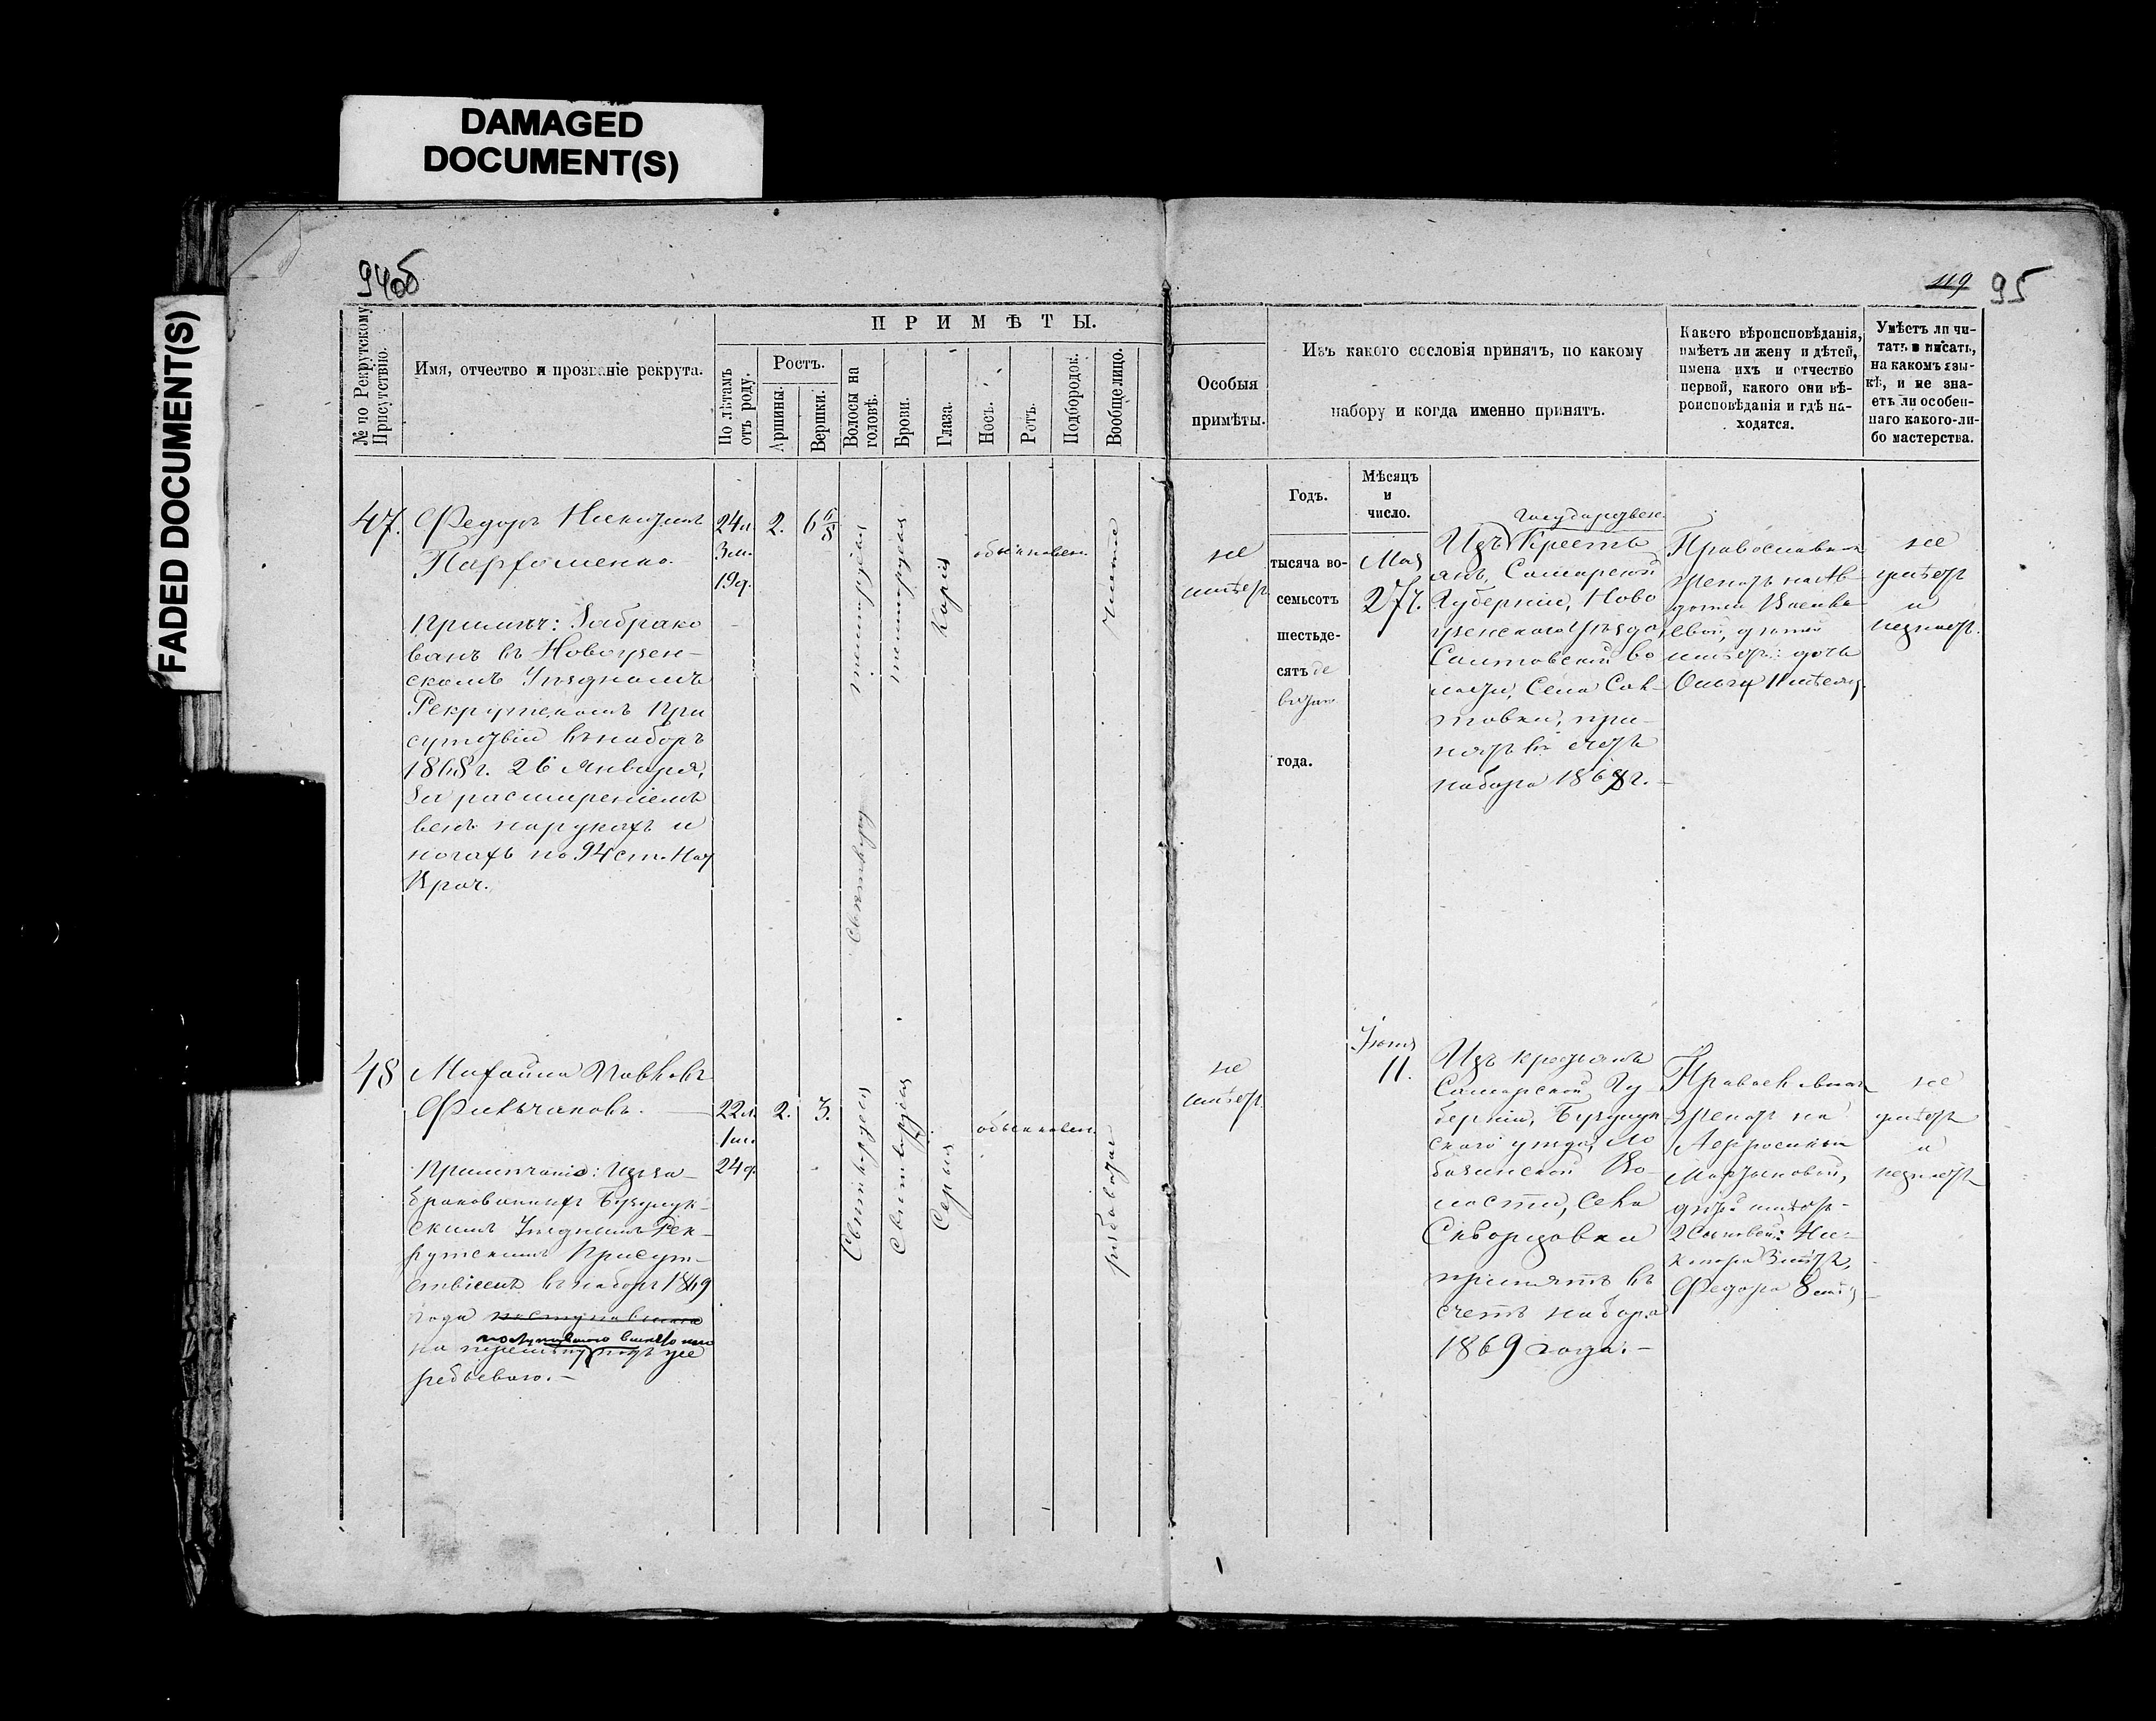 DAMAGED
DOCUMENT(S)
FADED DOCUMENT(S)
94об
119 95
№ по Рекрутскому
Присутствію.
Имя, отчество и прозваніе рекрута.
ПРИМѢТЫ.
По лѣтамъ
отъ роду.
Ростъ.
Аршины.
Вершки.
Волосы на
головѣ.
Брови.
Глаза.
Носъ.
Ротъ.
Подбородок.
Вообще лицо.
Особыя
примѣты.
Изъ какого сословія принятъ, по какому
набору и когда именно принятъ.
Какого вѣроисповѣданія,
имѣетъ ли жену и дѣтей,
имена ихъ и отчество
первой, какого они вѣ-
роисповѣданія и гдѣ на-
ходятся.
Умѣетъ ли чи-
тать и писать,
на какомъ язы-
кѣ, и не зна-
етъ ли особен-
наго какого-ли-
бо мастерства.
Годъ.
Мѣсяцъ
и
число.
47.
Федоръ
Парфоменко.
Примѣч: Забрако
ванъ въ Новоузен-
скомъ Уѣздномъ
Рекрутскомъ При
сутствіи въ наборъ
1868 г. 26 Января,
за расширеніемъ
венъ на рукахъ и
ногахъ по 94 ст. Нас
Врач.
24 л.
3 м.
19 д.
2.
6 6/8
темнорусыя
Светлорус
темнорусыя
Каріе
обыкновен.
чистое
не
имѣетъ
тысяча во-
семьсотъ
шестьде-
сятъ де
вятаго
года.
Мая
27.
Государствен.
Изъ Кресть
янъ, Самарской
Губерніи, Ново
узенскаго Уѣзда
Салтовской во
лости, Села Сал-
товки, при-
нятъ въ счетъ
набора 1868 г. -
Православн
женатъ на Ав-
дотьи Василь
евой, дѣтей
имѣетъ: дочь
Ольгу
не
умѣетъ
и
незнаетъ.
48
Михаилъ Павловъ
Филь
Примѣчаніе: Изъ за-
бракованныхъ Бузулук-
скимъ Уѣзднымъ Рек-
рутскимъ Присут-
ствіемъ въ наборъ 1869
года поступившаго
поступившаго вмѣсто него
на перемѣну
ребьеваго. -
22 л.
1 м.
24 д.
2.
3.
Светлорусыя
Светлорусыя
Серыя
обыкновен.
рябоватое
не
имѣетъ.
Іюня
11.
Изъ крестьянъ
Самарской Гу-
берніи, Бузулук
скаго уѣзда, Ло
базинской Во-
лости, села
Скворцовки
принятъ въ
счетъ набора
1869 года. -
Православн
женатъ на
Афросиньи
Мартыновой,
дѣтей имѣетъ -
2 сыновей: Ни-
кифора 3 лѣтъ,
Федора
не
умѣетъ
и
незнаетъ